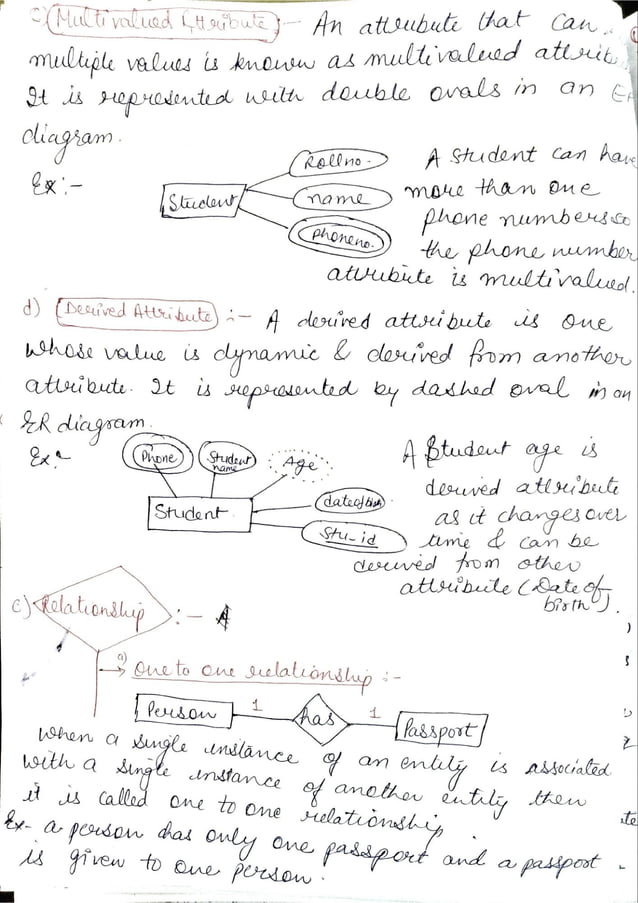 c) Multivalued Attribute :- An attribute that can
multiple values is known as multivalued attrib
It is represented with double ovals in an E
diagram.
Ex:-
Rollno.
Student
name
phoneno.
A student can have
more than one
phone numbers so
the phone number
attribute is multivalued.
d) Derived Attribute :- A derived attribute is one
whose value is dynamic & derived from another
attribute. It is represented by dashed oval in an
ER diagram.
Ex:-
Phone
Student
name
Age
dateofbirth
Student
Stu_id
A Student age is
derived attribute
as it changes over
time & can be
derived from other
attribute (Date of
birth).
c) Relationship :- A
a) One to one relationship :-
Person 1 has 1 Passport
when a single instance of an entity is associated
with a single instance of another entity then
it is called one to one relationship.
Ex- a person has only one passport and a passport
is given to one person.